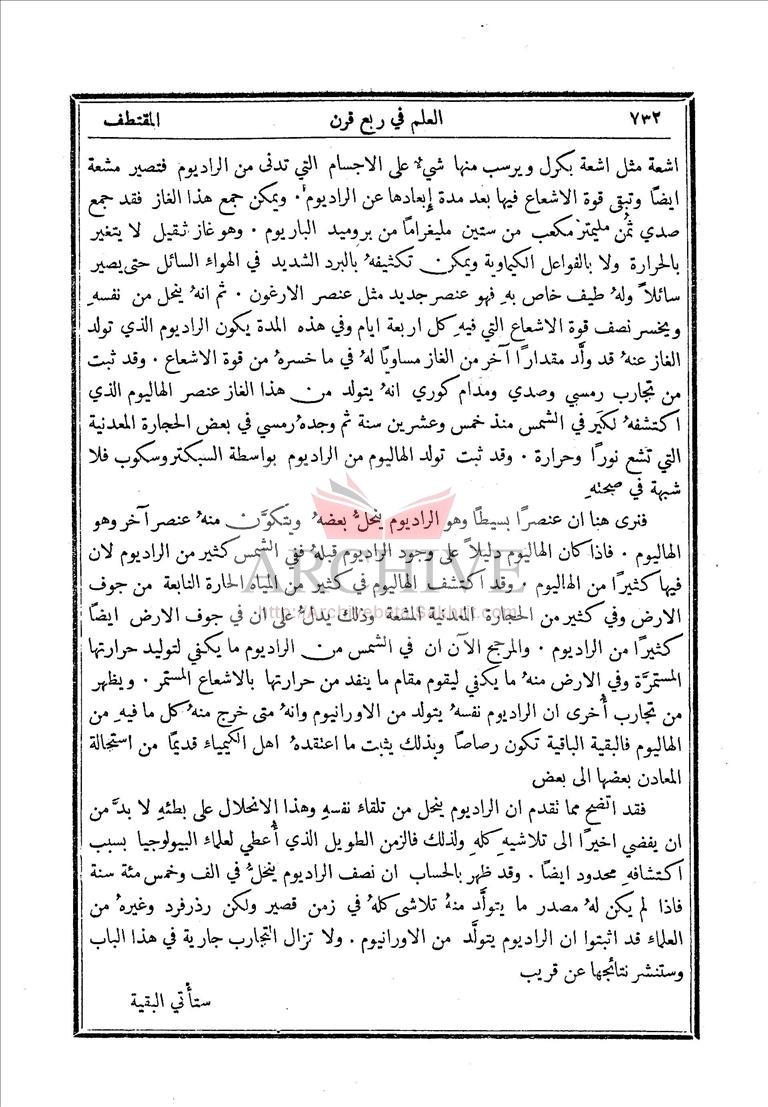 ٧٣٢ العلم في ربع قرن المقتطف
اشعة مثل اشعة بكرل ويرسب منها شيءٌ على الاجسام التي تدنى من الراديوم فتصير مشعة
ايضًا وتبقى قوة الاشعاع فيها بعد مدة إبعادها عن الراديوم. ويمكن جمع هذا الغاز فقد جمع
صدي ثُمن مليمتر مكعب من ستين مليغرامًا من بروميد الباريوم. وهو غاز ثقيل لا يتغير
بالحرارة ولا بالفواعل الكيماوية ويمكن تكثيفهُ بالبرد الشديد في الهواء السائل حتى يصير
سائلاً ولهُ طيف خاص بهِ فهو عنصر جديد مثل عنصر الارغون. ثم انهُ ينحل من نفسهِ
ويخسر نصف قوة الاشعاع التي فيهِ كل اربعة ايام وفي هذه المدة يكون الراديوم الذي تولد
الغاز عنهُ قد ولَّد مقدارًا آخر من الغاز مساويًا لهُ في ما خسرهُ من قوة الاشعاع. وقد ثبت
من تجارب رمسي وصدي ومدام كوري انهُ يتولد من هذا الغاز عنصر الهاليوم الذي
اكتشفهُ لكير في الشمس منذ خمس وعشرين سنة ثم وجدهُ رمسي في بعض الحجارة المعدنية
التي تشع نورًا وحرارة. وقد ثبت تولد الهاليوم من الراديوم بواسطة السبكتروسكوب فلا
شبهة في صحتهِ
فنرى هنا ان عنصرًا بسيطًا وهو الراديوم ينحلُّ بعضهُ ويتكوَّن منهُ عنصر آخر وهو
الهاليوم. فاذا كان الهاليوم دليلاً على وجود الراديوم قبلهُ ففي الشمس كثير من الراديوم لان
فيها كثيرًا من الهاليوم. وقد اكتشف الهاليوم في كثير من المياه الحارة النابعة من جوف
الارض وفي كثير من الحجارة المعدنية المشعة وذلك يدلُّ على ان في جوف الارض ايضًا
كثيرًا من الراديوم. والمرجح الآن ان في الشمس من الراديوم ما يكفي لتوليد حرارتها
المستمرَّة وفي الارض منهُ ما يكفي ليقوم مقام ما ينفد من حرارتها بالاشعاع المستمر. ويظهر
من تجارب أُخرى ان الراديوم نفسهُ يتولد من الاورانيوم وانهُ متى خرج منهُ كل ما فيهِ من
الهاليوم فالبقية الباقية تكون رصاصًا وبذلك يثبت ما اعتقدهُ اهل الكيمياء قديمًا من استحالة
المعادن بعضها الى بعض
فقد اتضح مما نقدم ان الراديوم ينحل من تلقاء نفسهِ وهذا الانحلال على بطئهِ لا بدَّ من
ان يفضي اخيرًا الى تلاشيهِ كلهِ ولذلك فالزمن الطويل الذي أُعطي لعلماء البيولوجيا بسبب
اكتشافهِ محدود ايضًا. وقد ظهر بالحساب ان نصف الراديوم ينحلُّ في الف وخمس مئة سنة
فاذا لم يكن لهُ مصدر ما يتولَّد منهُ تلاشى كلهُ في زمن قصير ولكن رذرفرد وغيرهُ من
العلماء قد اثبتوا ان الراديوم يتولَّد من الاورانيوم. ولا تزال التجارب جارية في هذا الباب
وستنشر نتائجها عن قريب
ستأتي البقية
ARCHIVE
http://Archivebeta.Sakhrit.com